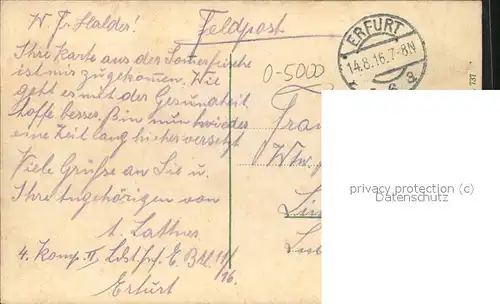 W. Fr. Halder!
Feldpost
Ihre Karte aus der Sommerfrische
ist mir zugekommen. Wie
geht es mit der Gesundheit
hoffe besser. Bin nun wieder
eine Zeit lang hieher versetzt
Viele Grüße an Sie u.
Ihre Angehörigen von
A. Lattner
4. Komp. II. Ldst. Inf. E. Btl. 11/16.
Erfurt
0-5000
ERFURT
14.8.16.7-8N
Frau
Wtw.
privacy protection (c)
Datenschutz